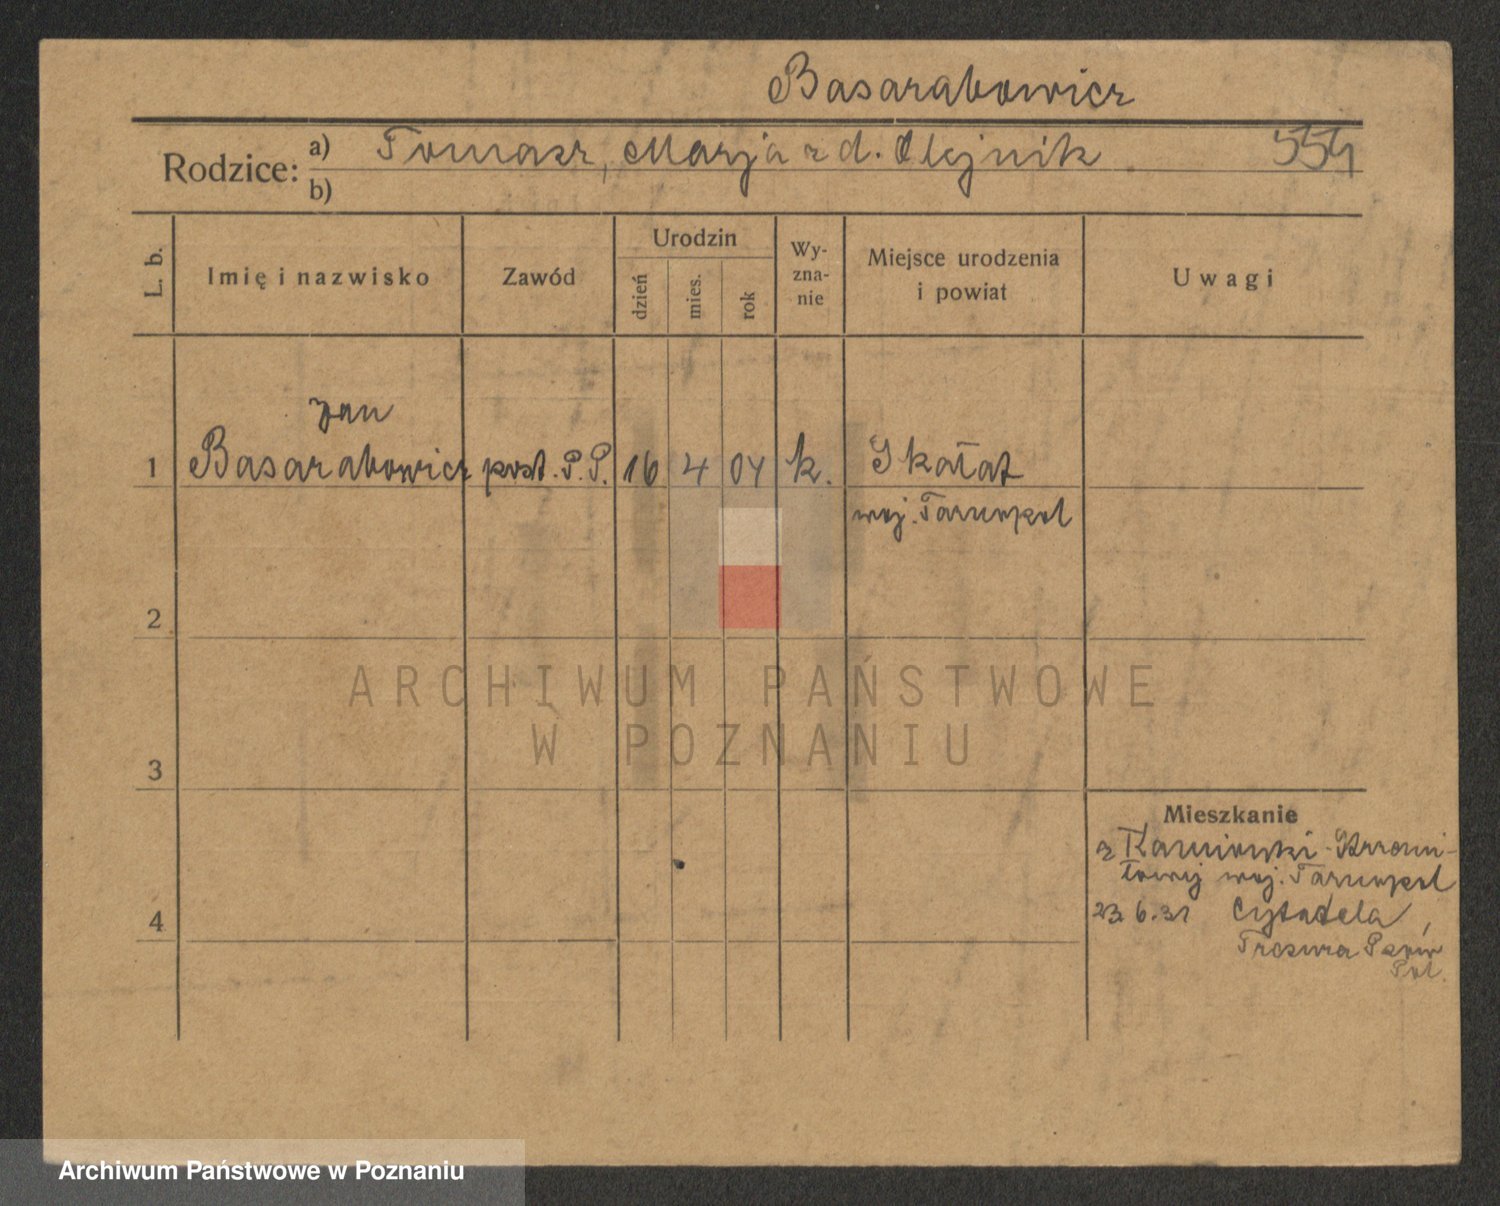 Basarabowicz
Rodzice: a) Tomasz, Marja z d. Olejnik
b)
L. b.
Imię i nazwisko
Zawód
Urodzin
dzień
mies.
rok
Wy-
zna-
nie
Miejsce urodzenia
i powiat
Uwagi
Jan
1 Basarabowicz post. P.P. 16 4 04 k. Skałat
woj. Tarnopol
2
3
4
Mieszkanie
z
woj. Tarnopol
23.6.31 Cytadela,
Pol.
ARCHIWUM PAŃSTWOWE
W POZNANIU
Archiwum Państwowe w Poznaniu